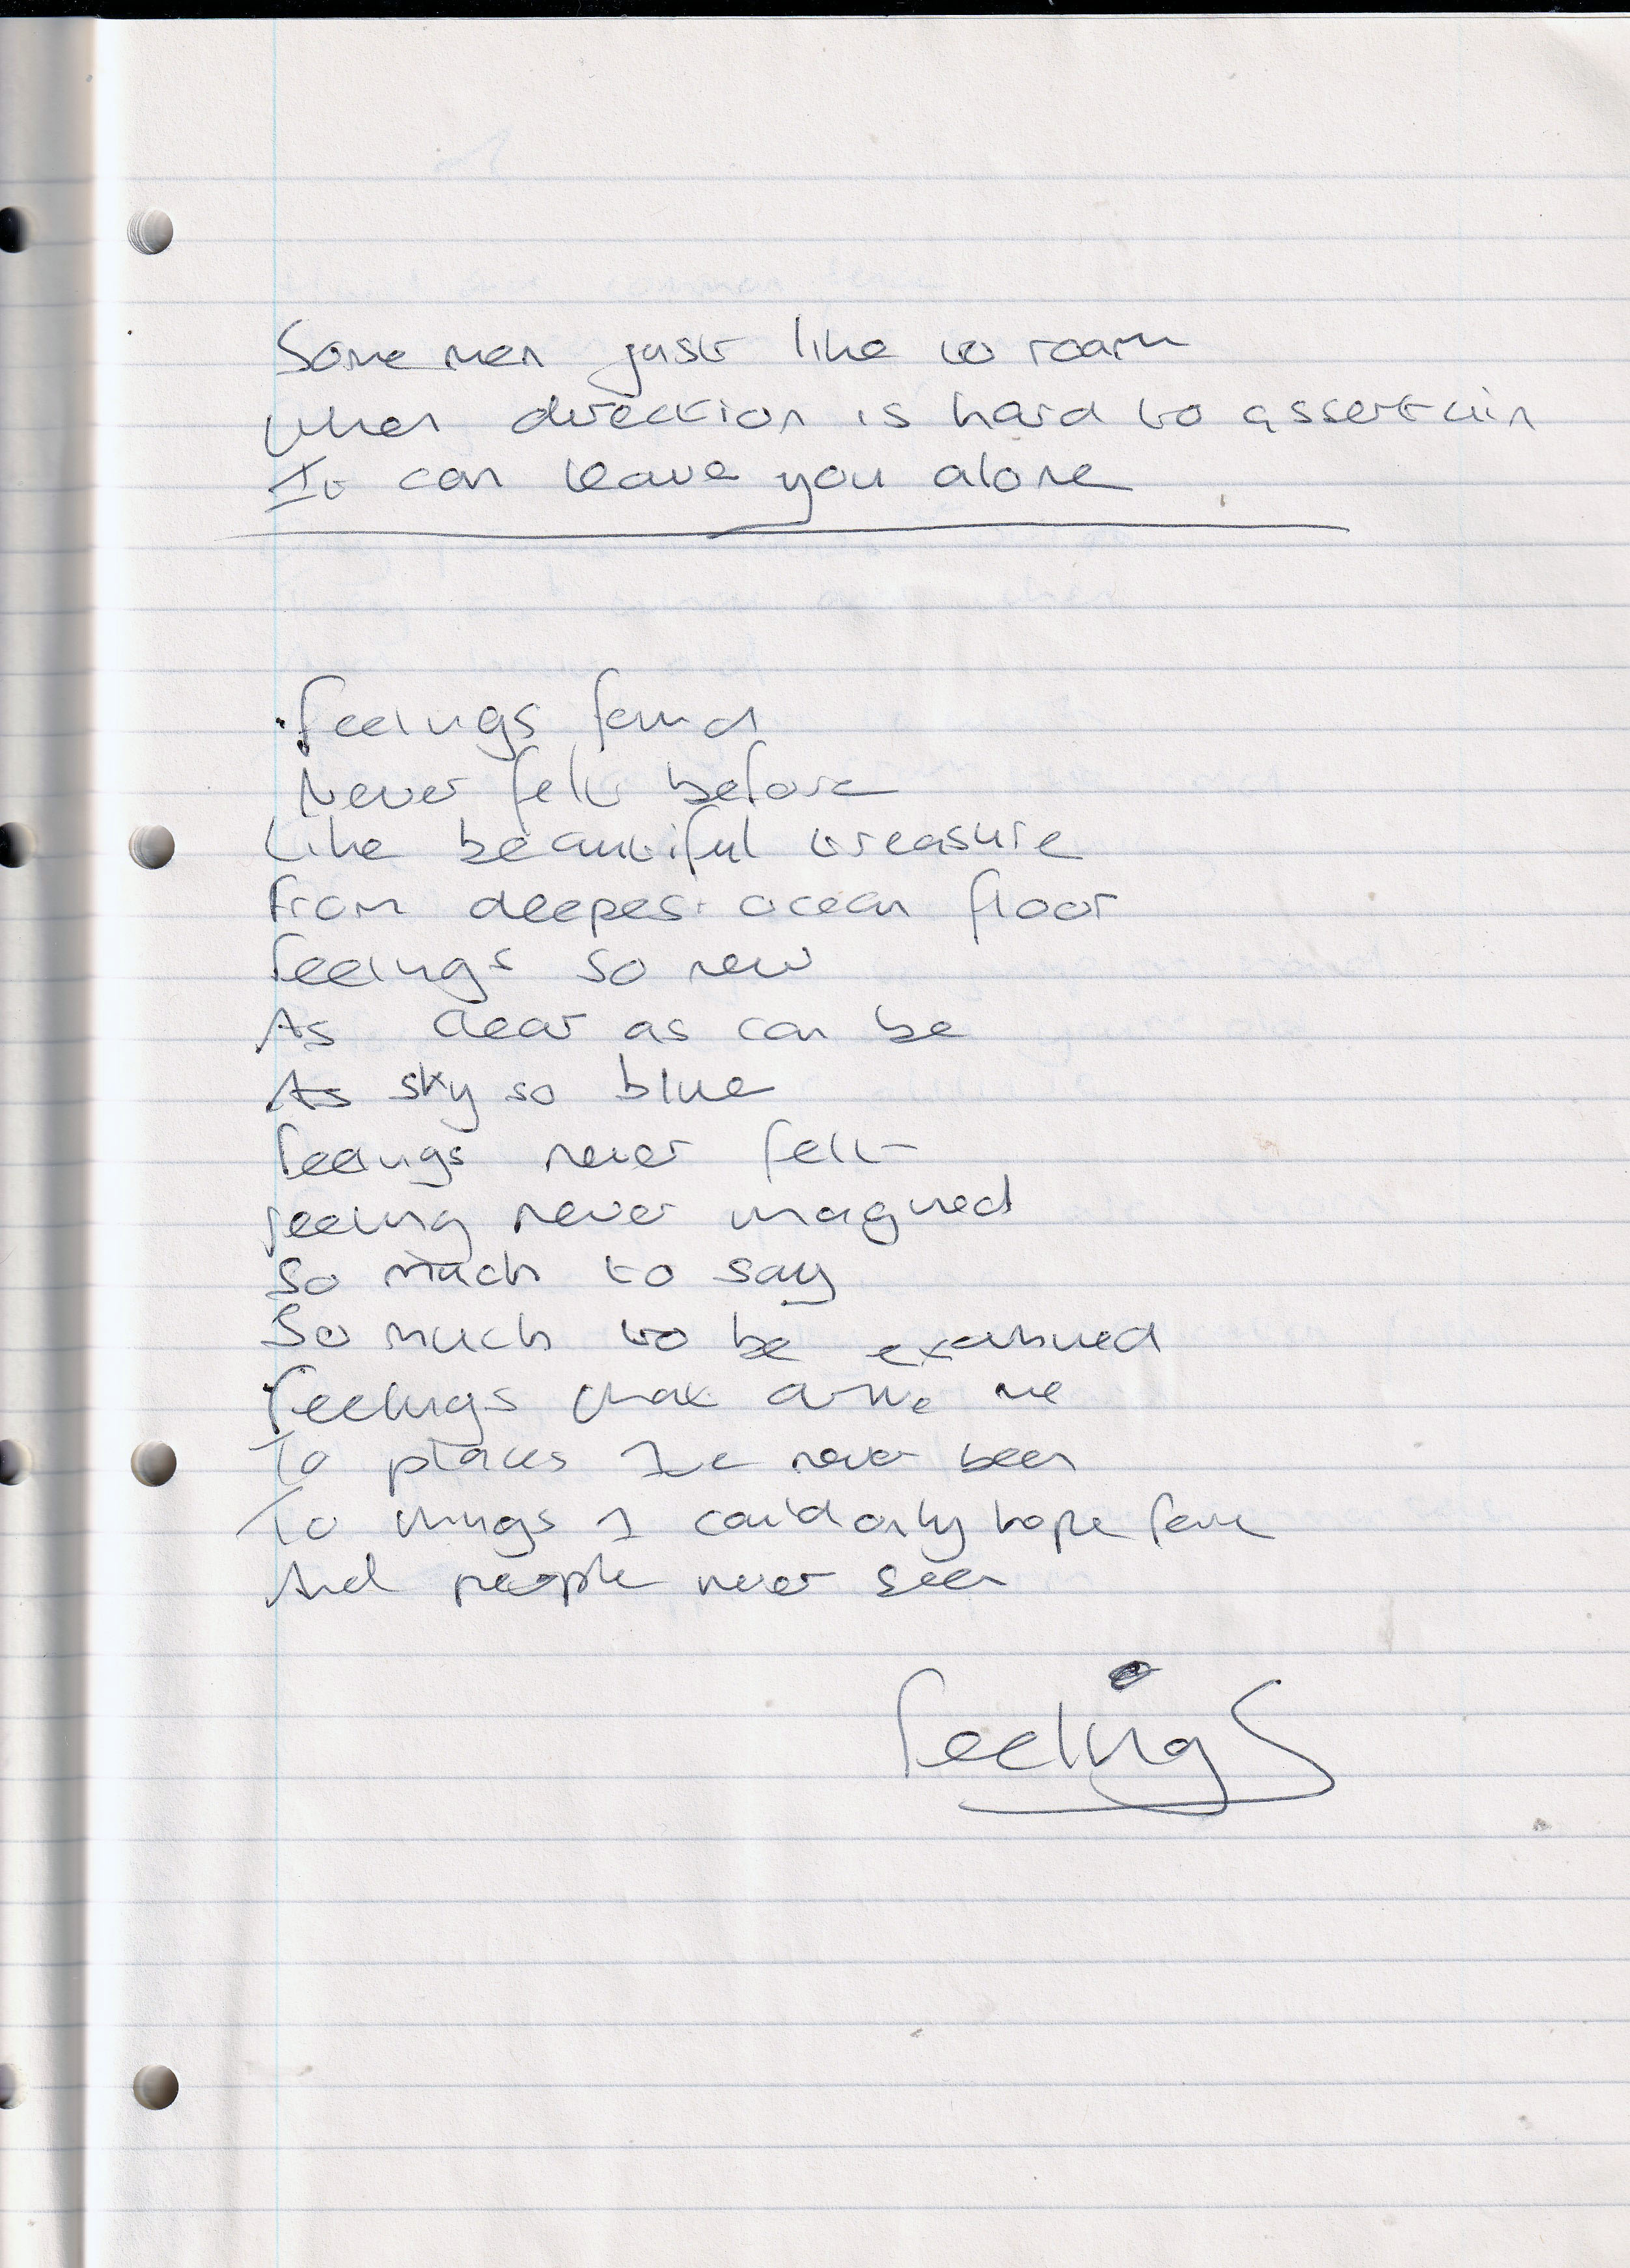 Some men just like to roam
When direction is hard to assertain
It can leave you alone
Feelings found
Never felt before
Like beautiful treasure
From deepest ocean floor
Feelings so new
As clear as can be
As sky so blue
Feelings never felt
Feeling never imagined
So much to say
So much to be examined
Feelings that drive me
To places I've never been
To things I could only hope for
And people never seen
Feelings